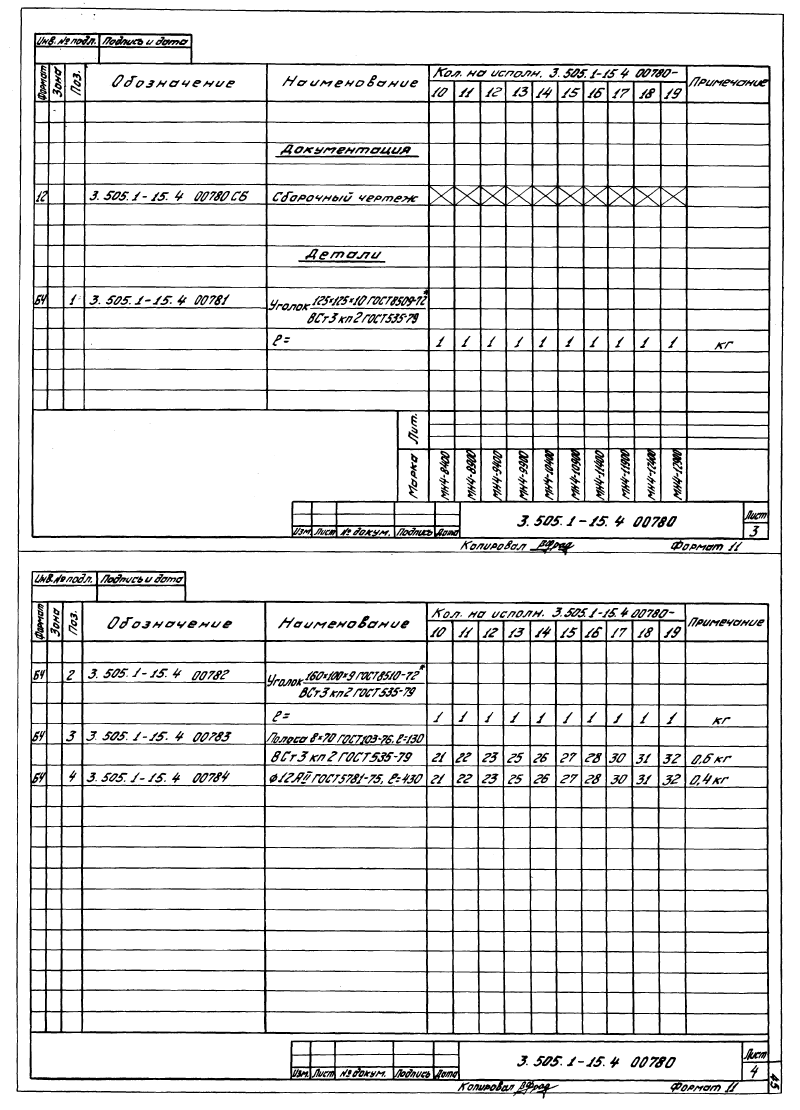 Инв. № подл. Подпись и дата
Формат Зона Поз. Обозначение Наименование Кол. на исполн. 3.505.1-15.4 00780- Примечание
10 11 12 13 14 15 16 17 18 19
Документация
12 3.505.1-15.4 00780СБ Сборочный чертеж
Детали
БЧ 1 3.505.1-15.4 00781 Уголок 125×125×10 ГОСТ 8509-72*
ВСт3 кп2 ГОСТ 535-79
ℓ= 1 1 1 1 1 1 1 1 1 1 кг
Лит.
Марка МН4-8400 МН4-8900 МН4-9400 МН4-9900 МН4-10400 МН4-10900 МН4-11400 МН4-11900 МН4-12400 МН4-12900
Изм. Лист № докум. Подпись Дата 3.505.1-15.4 00780 Лист 3
Копировал Формат 11
Инв. № подл. Подпись и дата
Формат Зона Поз. Обозначение Наименование Кол. на исполн. 3.505.1-15.4 00780- Примечание
10 11 12 13 14 15 16 17 18 19
БЧ 2 3.505.1-15.4 00782 Уголок 160×100×9 ГОСТ 8510-72*
ВСт3 кп2 ГОСТ 535-79
ℓ= 1 1 1 1 1 1 1 1 1 1 кг
БЧ 3 3.505.1-15.4 00783 Полоса 8×70 ГОСТ 103-76, ℓ=130
ВСт3 кп2 ГОСТ 535-79 21 22 23 25 26 27 28 30 31 32 0,6 кг
БЧ 4 3.505.1-15.4 00784 ⌀12АII ГОСТ 5781-75, ℓ=430 21 22 23 25 26 27 28 30 31 32 0,4 кг
Изм. Лист № докум. Подпись Дата 3.505.1-15.4 00780 Лист 4
Копировал Формат 11
45